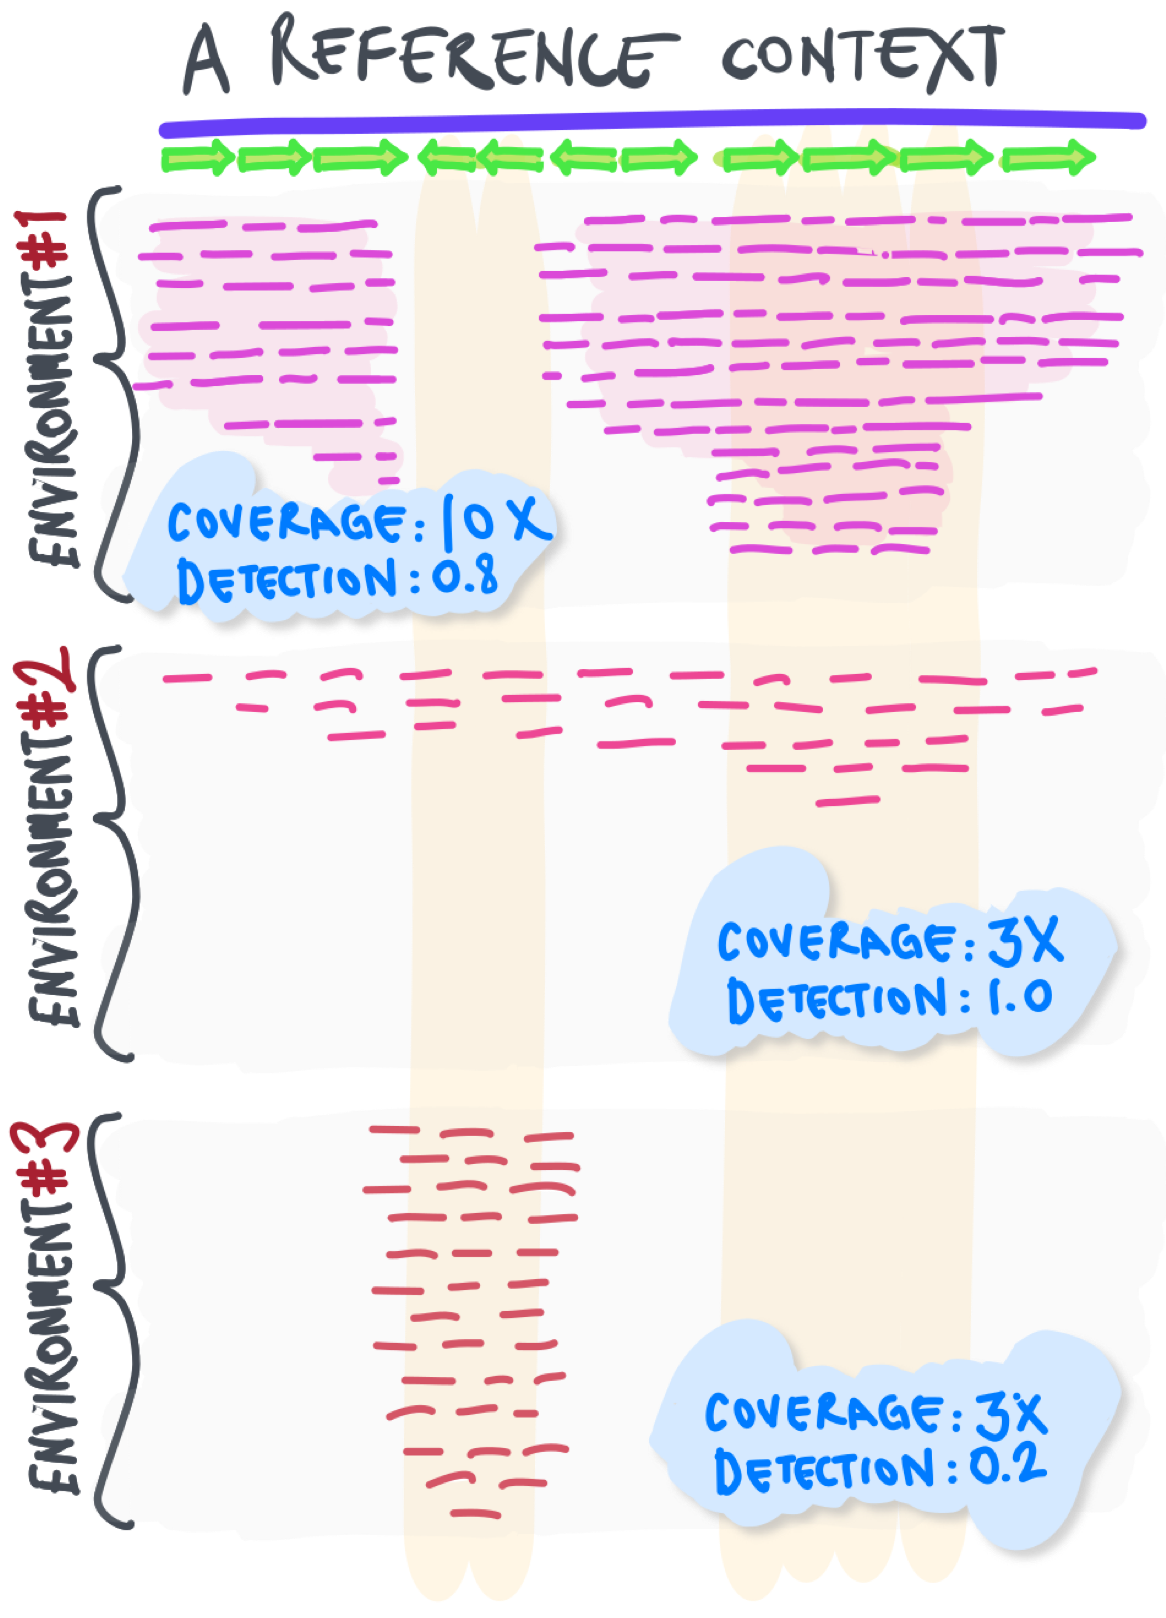 A REFERENCE CONTEXT
ENVIRONMENT#1
COVERAGE: 10 X
DETECTION: 0.8
ENVIRONMENT#2
COVERAGE: 3X
DETECTION: 1.0
ENVIRONMENT#3
COVERAGE: 3X
DETECTION: 0.2